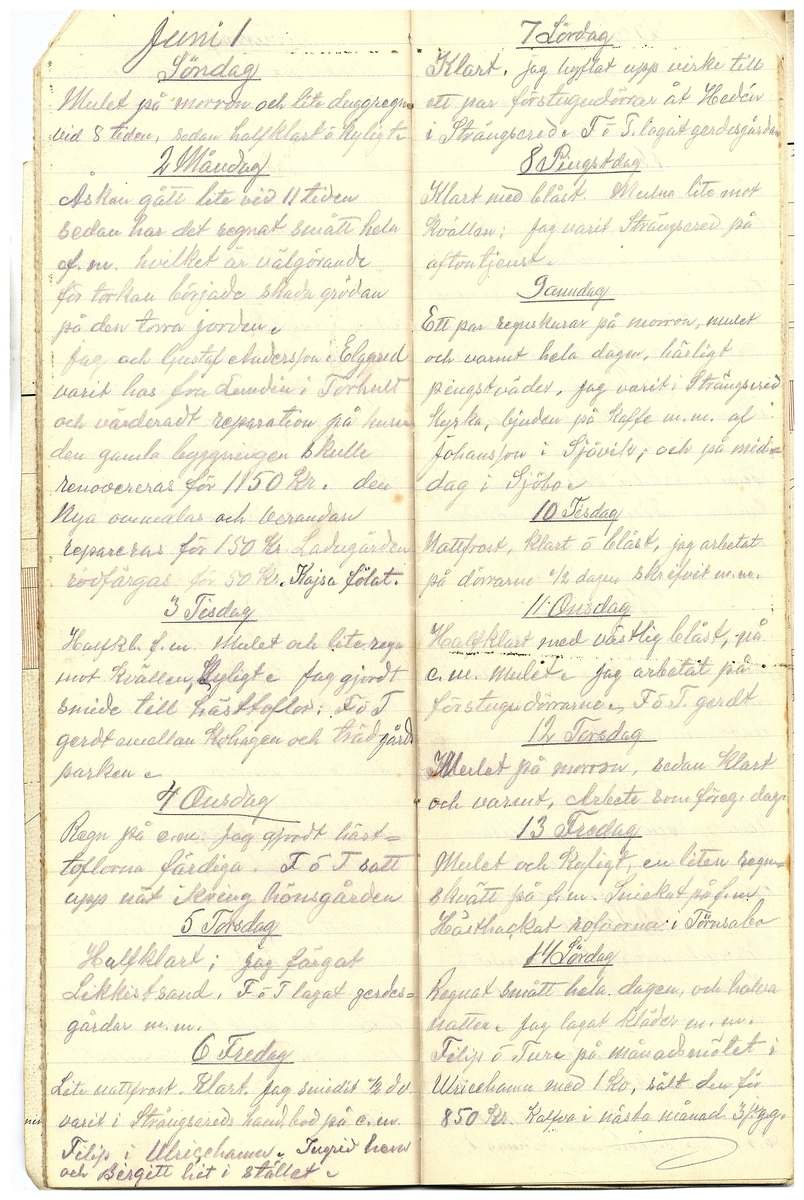 Juni 1
Söndag
Mulet på morron och lite duggregn
vid 8 tiden, sedan halfklart ö kyligt.
2 Måndag
Åskan gått lite vid 11 tiden
sedan har det regnat smått hela
e.m. hvilket är välgörande
för torkan började skada grödan
på den torra jorden.
Jag och Gustaf Andersson i Elggred
varit hos fru Lundén i Torhult
och värderadt reparation på husen
den gamla byggningen skulle
renovereras för 1150 Kr. den
Nya ommålas och Verandan
repareras för 150 Kr. Ladugården
rödfärgas för 50 Kr. Kajsa fölat.
3 Tisdag
Halfkl. f.m. Mulet och lite regn
mot kvällen, Kyligt. Jag gjordt
smide till hästtoflor; F ö T
gerdt emellan Kohagen och trädgårds
parken.
4 Onsdag
Regn på e.m. Jag gjordt häst=
toflorna färdiga. F ö T satt
upp nät ikring hönsgården
5 Torsdag
Halfklart; jag färgat
Likkist sand. F ö T lagat gerdes=
gårdar m.m.
6 Fredag
Lite nattfrost. Klart. Jag smidit 1/2 da.
varit i Strängsereds handbod på e.m.
Filip i Ulricehamn. Ingrid hem
och Bergitt hit i stället.
7 Lördag
Klart. jag hyflat upp virke till
ett par förstugudörrar åt Hedén
i Strängsered. F ö T. lagat gerdesgårdar
8 Pingstdag
Klart med blåst. Mulna lite mot
Kvällen; jag varit Strängsered på
aftontjenst.
9 anndag
Ett par regnskurar på morron, mulet
och varmt hela dagen, härligt
pingstväder, jag varit i Strängsered
Kyrka, bjuden på Kaffe m.m. af
Johansson i Sjövik; och på mid=
dag i Sjöbo.
10 Tisdag
Nattfrost, klart ö blåst, jag arbetat
på dörrarne 1/2 dagen skrifvit m.m.
11 Onsdag
Halfklart med västlig blåst, på
e.m. mulet. jag arbetat på
förstugudörrarne, F ö T. gerdt
12 Torsdag
Mulet på morron, sedan klart
och varmt, Arbete som föreg. dag.
13 Fredag
Mulet och Kyligt, en liten regn=
skvätt på f.m. Snickat på f.m.
Hästhackat rofvorna i Törnsabo
14 Lördag
Regnat smått hela dagen, och halva
natten. Jag lagat kläder m.m.
Filip ö Ture på månadsmötet i
Ulricehamn med 1 Ko, sålt den för
850 Kr. Kalfva i nästa månad